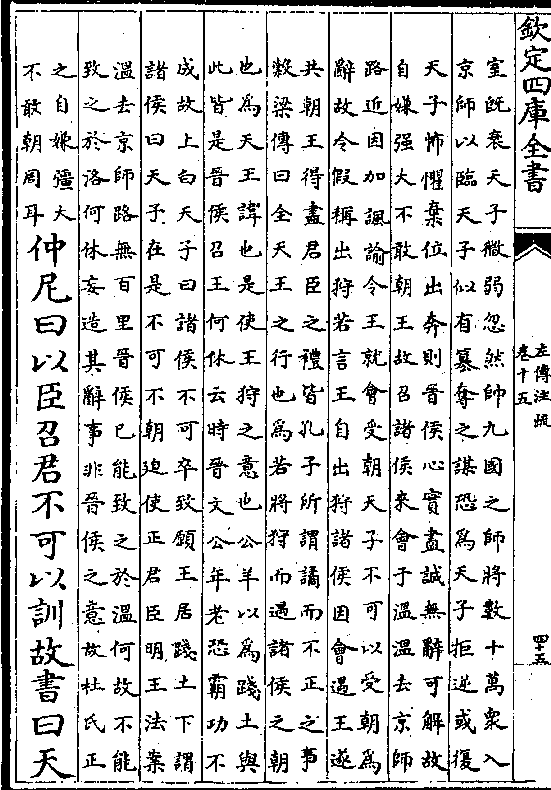 欽定四庫全書
左傳注疏
卷十五
四十五
室既衰天子微弱忽然帥九國之師將數十萬衆入
京師以臨天子似有篡奪之謀恐為天子拒逆或復
天子怖懼棄位出奔則晉侯心實盡誠無辭可解故
自嫌强大不敢朝王故召諸侯來會于溫溫去京師
路近因加諷諭令王就會受朝天子不可以受朝為
辭故令假稱出狩若言王自出狩諸侯因會遇王遂
共朝王得盡君臣之禮皆孔子所謂譎而不正之事
穀梁傳曰全天王之行也為若將狩而遇諸侯之朝
也為天王諱也是使王狩之意也公羊以為踐土與
此皆是晉侯召王何休云時晉文公年老恐霸功不
成故上白天子曰諸侯不可卒致願王居踐土下謂
諸侯曰天子在是不可不朝迫使正君臣明王法案
溫去京師路無百里晉侯已能致之於溫何故不能
致之於洛何休妄造其辭事非晉侯之意故杜氏正
之自嫌彊大
不敢朝周耳
仲尼曰以臣召君不可以訓故書曰天